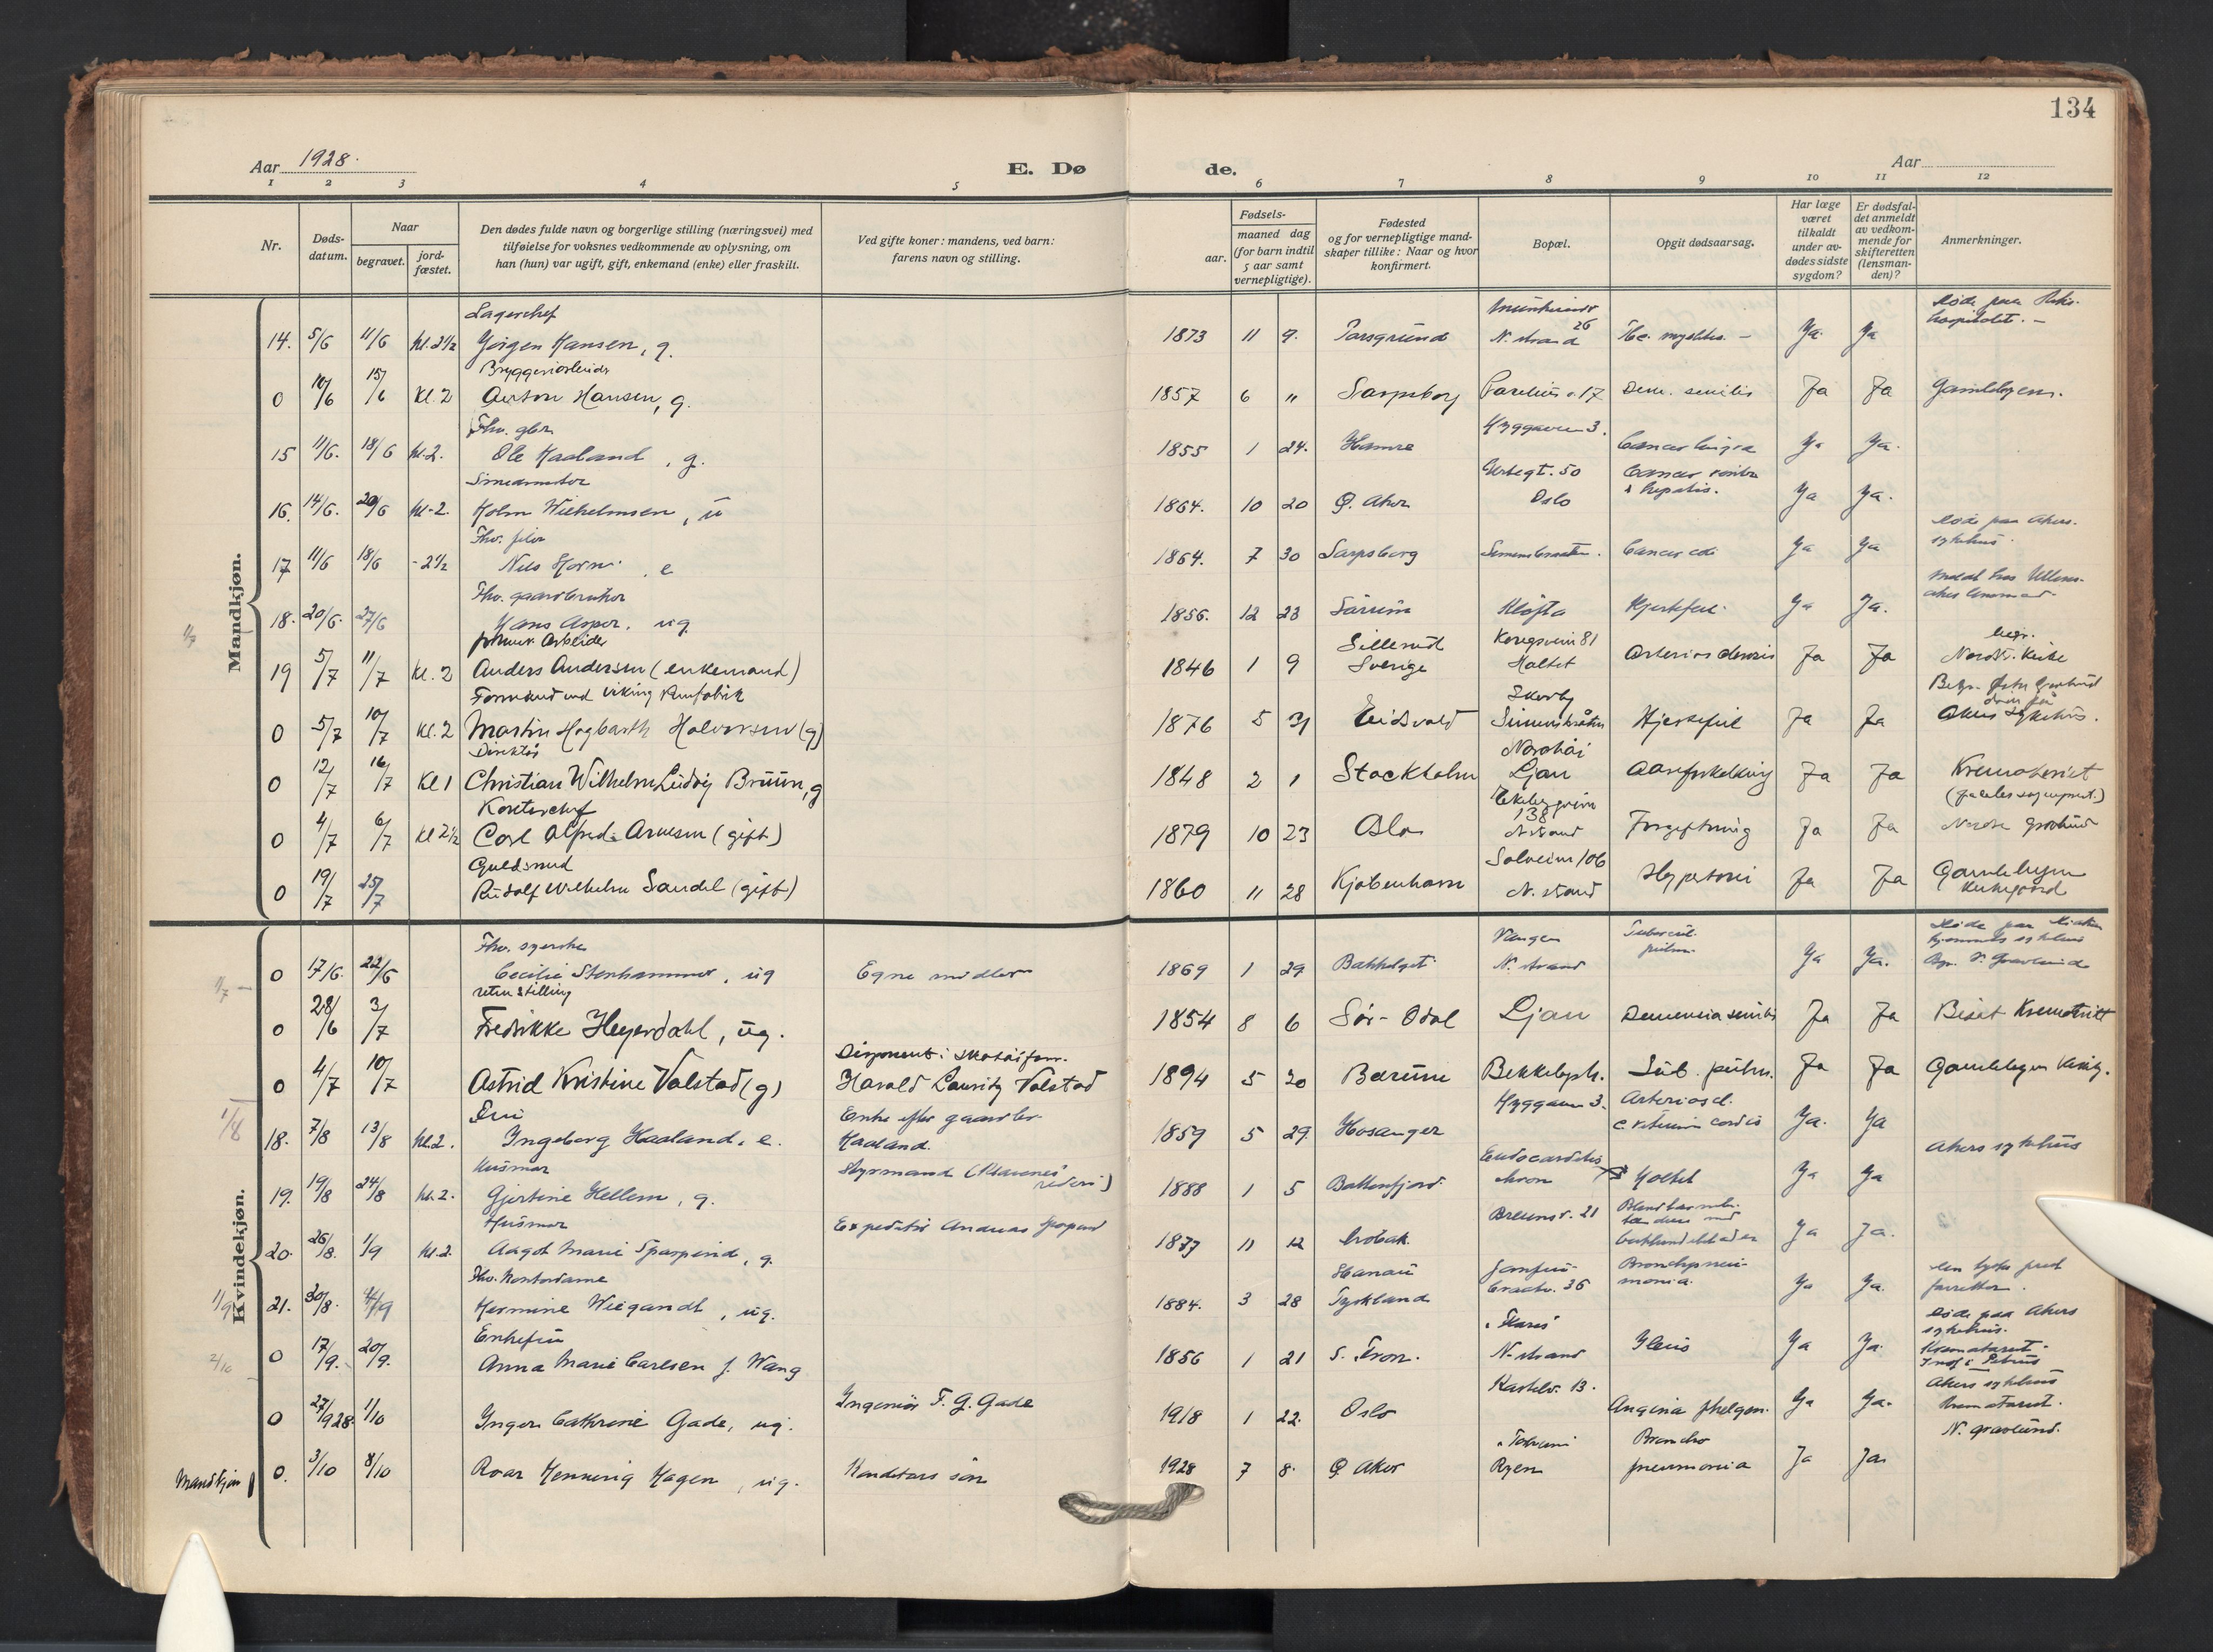 134
Aar 1928.
E. Dø de.
Aar
1 2 3 4 5 6 7 8 9 10 11 12
Nr.
Døds-
datum.
Naar
begravet.
jord-
fæstet.
Den dødes fulde navn og borgerlige stilling (næringsvei) med
tilføielse for voksnes vedkommende av oplysning, om
han (hun) var ugift, gift, enkemand (enke) eller fraskilt.
Ved gifte koner: mandens, ved barn:
farens navn og stilling.
Fødsels-
aar.
maaned dag
(for barn indtil
5 aar samt
vernepligtige).
Fødested
og for vernepligtige mand-
skaper tillike: Naar og hvor
konfirmert.
Bopæl.
Opgit dødsaarsag.
Har læge
været
tilkaldt
under av-
dødes sidste
sygdom?
Er dødsfal-
det anmeldt
av vedkom-
mende for
skifteretten
(lensman-
den)?
Anmerkninger.
Mandkjøn.
Lagerchef
14. 5/6 11/6 kl. 2 1/2 Jørgen Hansen, g. 1873 11 9. Porsgrund N. strand 26 Ja. Ja
Bryggeriarbeider
0 10/6 15/6 Kl. 2 Anton Hansen, g. 1857 6 " Sarpsborg 17 Dem. senilis Ja Ja Gamlebyens.
Fhv. gbr.
15 11/6. 18/6 kl. 2. Ole Haaland, g. 1855 1 24. Hamre Hyggaven 3. Cancer Ja Ja.
16. 14/6. 20/6 kl. 2. Holm Wilhelmsen, u 1864. 10 20 Ø. Aker 50 Oslo Cancer hepatis. Ja Ja.
Fhv.
17 11/6 18/6 - 2 1/2 Nils Horn, e 1864. 7 30 Sarpsborg Cancer Ja Ja Døde paa Akers sykehus.
Fhv. gaardbruker
18. 20/6. 27/6 Hans Asper, ug. 1856. 12 23 Sørum Kløfta Hjertefeil Ja Ja.
Arbeider
19 5/7 11/7 Kl. 2 Anders Andersen (enkemand) 1846 1 9 Sillerud Sverige 81 Holtet Ja Ja begr. Nordstr. Kirke
0 5/7 10/7 Kl. 2 Martin Hogbarth Halvorsen (g) 1876 5 31 Eidsvold Hjertefeil Ja Ja Akers Sykehus.
Direktør
0 12/7 16/7 Kl 1 Christian Wilhelm Ludvig Bruun, g 1848 2 1 Stockholm Ljan Aareforkalkning Ja Ja Krematoriet
Kontorchef
0 4/7 6/7 Kl 2 1/2 Carl Alfred Arnesen (gift) 1879 10 23 Oslo 138 N. strand Forgiftning Ja Ja
Guldsmed
0 19/7 25/7 Rudolf Wilhelm Sandel (gift) 1860 11 28 Kjøbenhavn Solveien 106 N. strand Hypertoni Ja Ja Gamlebyen Kirkegaard
Kvindekjøn.
Fhv. syerske
0 17/6. 22/6 Cecilie Stenhammer, ug Egne midler 1869 1 29 Bakkelaget N. strand Tubercul. pulm. Ja Ja.
uten stilling
0 28/6 3/7 Fredrikke Heyerdahl, ug. 1854 8 6 Sør-Odal Ljan Demencia senilis Ja Ja Bisat Krematoriet
0 4/7 10/7 Astrid Kristine Valstad (g) Harald Lauritz Valstad 1894 5 20 Bærum Bekkelagsh. Tub. pulm. Ja Ja Gamlebyen
18. 7/8 13/8 kl. 2. Ingeborg Haaland, e. Enke efter gaardbr. Haaland. 1859 5 29. Hosanger Hyggaven 3. Arteriosel. Ja. Ja
Husmor
19. 19/8 24/8 kl. 2. Gjertine Hellem, g. Styrmand 1888 1 5 Battenfjord Holtet Ja Ja Akers sykehus
Husmor
20. 26/8. 1/9 kl. 2. Aagot Marie Sparpind, g. Expeditør Andreas 1877 11 12 Drøbak 21 Ja Ja.
Fhv. Kontordame
21. 30/8. 4/9 Hermine Wiegandt, ug. 1884. 3 28 Hanau Tyskland 36 Bronchopneu-monia. Ja Ja.
Enkefru
0 17/9. 20/9. Anna Marie Carlsen f. Wang 1856 1 21 S. Fron. N. strand Ileus Ja Ja. Døde paa Akers sykehus. Krematoriet.
0 27/9 28 1/10 Inger Cathrine Gade, ug. Ingeniør F. G. Gade 1918 1 22. Oslo Kastelv. 13. Angina phelgon. Ja Ja. Akers sykehus Krematoriet. N. gravlund.
Mandkjøn
0. 3/10 8/10 Roar Henning Hagen, ug. Konditors søn 1928 7 8. Ø Aker Ryen Broncho pneumonia Ja Ja.